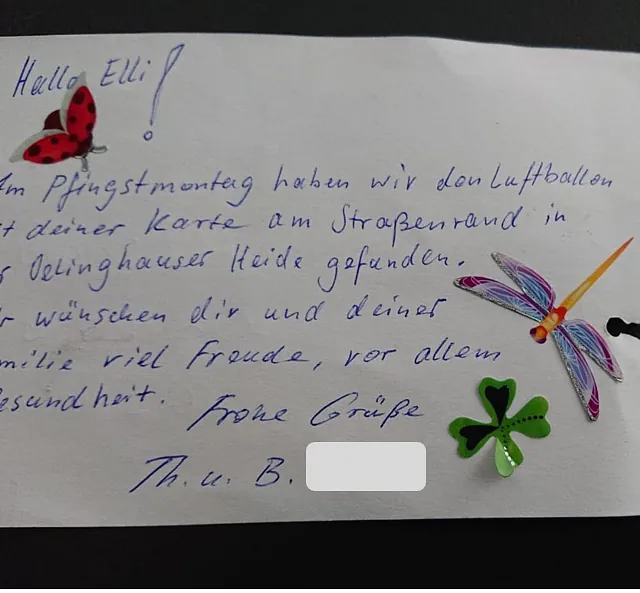 Hallo Elli!
Am Pfingstmontag haben wir den Luftballon
t deiner Karte am Straßenrand in
r Oelinghauser Heide gefunden.
r wünschen dir und deiner
milie viel Freude, vor allem
esundheit.
Frohe Grüße
Th. u. B.